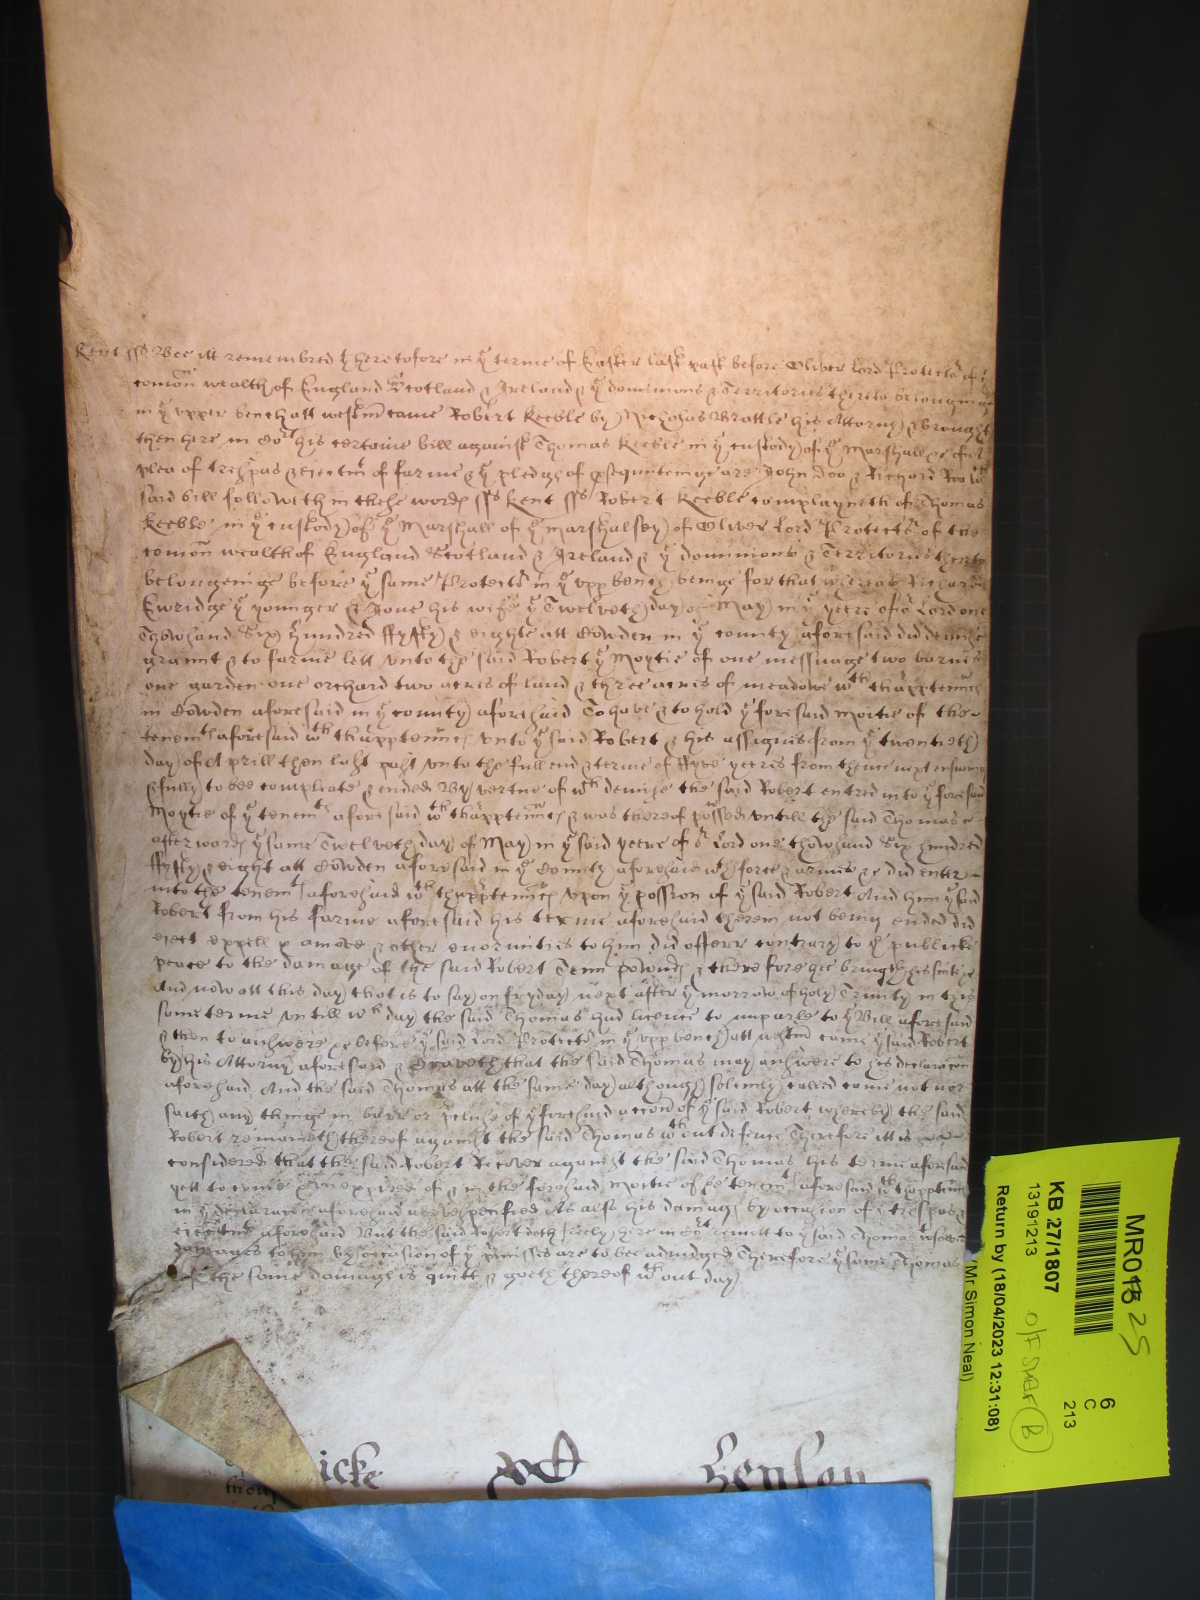 Kent ss Bee itt remembred yt heretofore in ye terme of Easter last past before Oliver Lord Protectr of ye
comon wealth of England Scotland & Ireland & ye dominions & Territories thereto belonginge
in ye upper bench att westmr came Robert Keeble by Nicholas Brattle his Attorny & brought
then here in Cort his certaine bill against Thomas Keeble in ye custody of ye Marshall &c of a
plea of trespas & eiectmt of farme & ye pledges of psequuteinge are John Doo & Richard Roo wch
said bill followeth in these words ss Kent ss Robert Keeble complayneth of Thomas
Keeble in ye custody of ye Marshall of ye marshalsey of Oliver Lord Protectr of the
comon wealth of England Scotland & Ireland & ye dominions & Territories thereto
belongeinge before ye same Protectr in ye vpp bench beinge for that whereas Richard
Ewridge ye younger & Jone his wife ye Twelveth day of May in ye yeere of or Lord one
Thowsand Six hundred ffyfty & eighte att Cowden in ye county aforesaid did demise
graunt & to farme lett vnto the said Robert ye Moytie of one messuage two barnes
one garden one orchard two acres of land & three acres of meadowe wth thapptennces
in Cowden aforesaid in ye county aforesaid To have & to hold ye foresaid moitie of the
tenemts aforesaid wth thapptennces vnto ye said Robert & his assignes from ye twentieth
day of Aprill then last past vnto the full end & terme of ffyve yeeres from thence next ensuing
& fully to bee compleate & ended By vertue of wch demise the said Robert entred into ye foresaid
Moytie of ye tenemts aforesaid wth thapptennces & was thereof possed vntill the said Thomas
afterwards ye same Twelveth day of May in ye said yeere of or Lord one thowsand Six hundred
ffyfty & eight att Cowden aforesaid in ye County aforesaid wth force & armes &c did enter
into the tenemts aforesaid wth thapptennces vpon ye possion of ye said Robert And him ye said
Robert from his farme aforesaid his terme aforesaid therein not being ended did
eiect expell & amove & other enormities to him did offerr contrary to ye publicke
peace to the damage of the said Robert Tenn pownds & therefore hee bringth his suite &c
And now att this day that is to say on fryday next after ye morrow of holy Trinity in this
same terme vntill wch day the said Thomas had licence to imparle to ye Bill aforesaid
& then to answere &c before ye said Lord Protectr in ye vpp bench att westmr came ye said Robert
by his Attorny aforesaid & prayeth that the said Thomas may answere to his declaracon
aforesaid And the said Thomas att the same day although solemly called came not nor
saith any thinge in barr or pcluse of ye foresaid accon of ye said Robert whereby the said
Robert remaineth thereof against the said Thomas wthout defence Therefore itt is
considered that the said Robert Recover against the said Thomas his terme aforesaid
yett to come & vnexpired of & in the foresaid Moitie of ye tenemts aforesaid wth thapptennces
in ye declaracon aforesaid above specified As also his damages by occasion of ye trespas &
eiectmt aforesaid But the said Robert doth freely here in Cort remitt to ye said Thomas whatsoever
damages to him by occasion of ye pmisses are to bee adiudged Therefore ye same Thomas
of the same damages is quitt & goeth thereof wthout day
icke Henley
MR018 25
KB 27/1807
13191213
Return by (18/04/2023 12:31:08)
(Mr Simon Neal)
6
C
213
O/F SHELF B